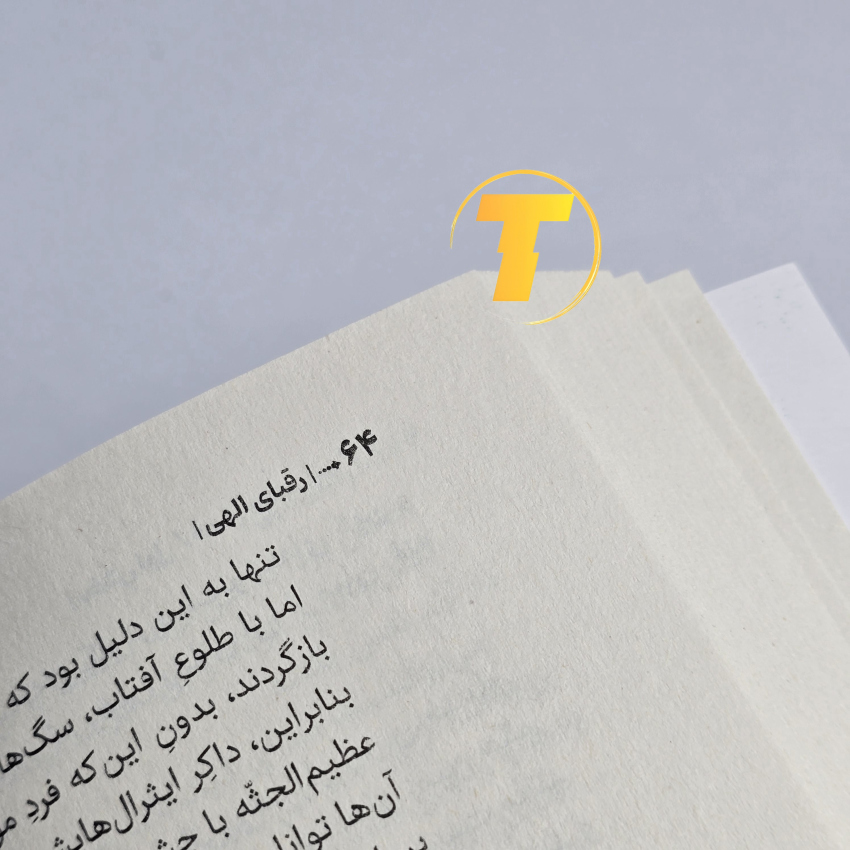 T
۶۴ ....| رقبای الهی |
تنها به این دلیل بود که
اما با طلوعِ آفتاب، سگ‌ها
بازگردند، بدونِ این‌که فردِ
بنابراین، داکِر ایثرال‌هایش
عظیم‌الجثّه با
آن‌ها